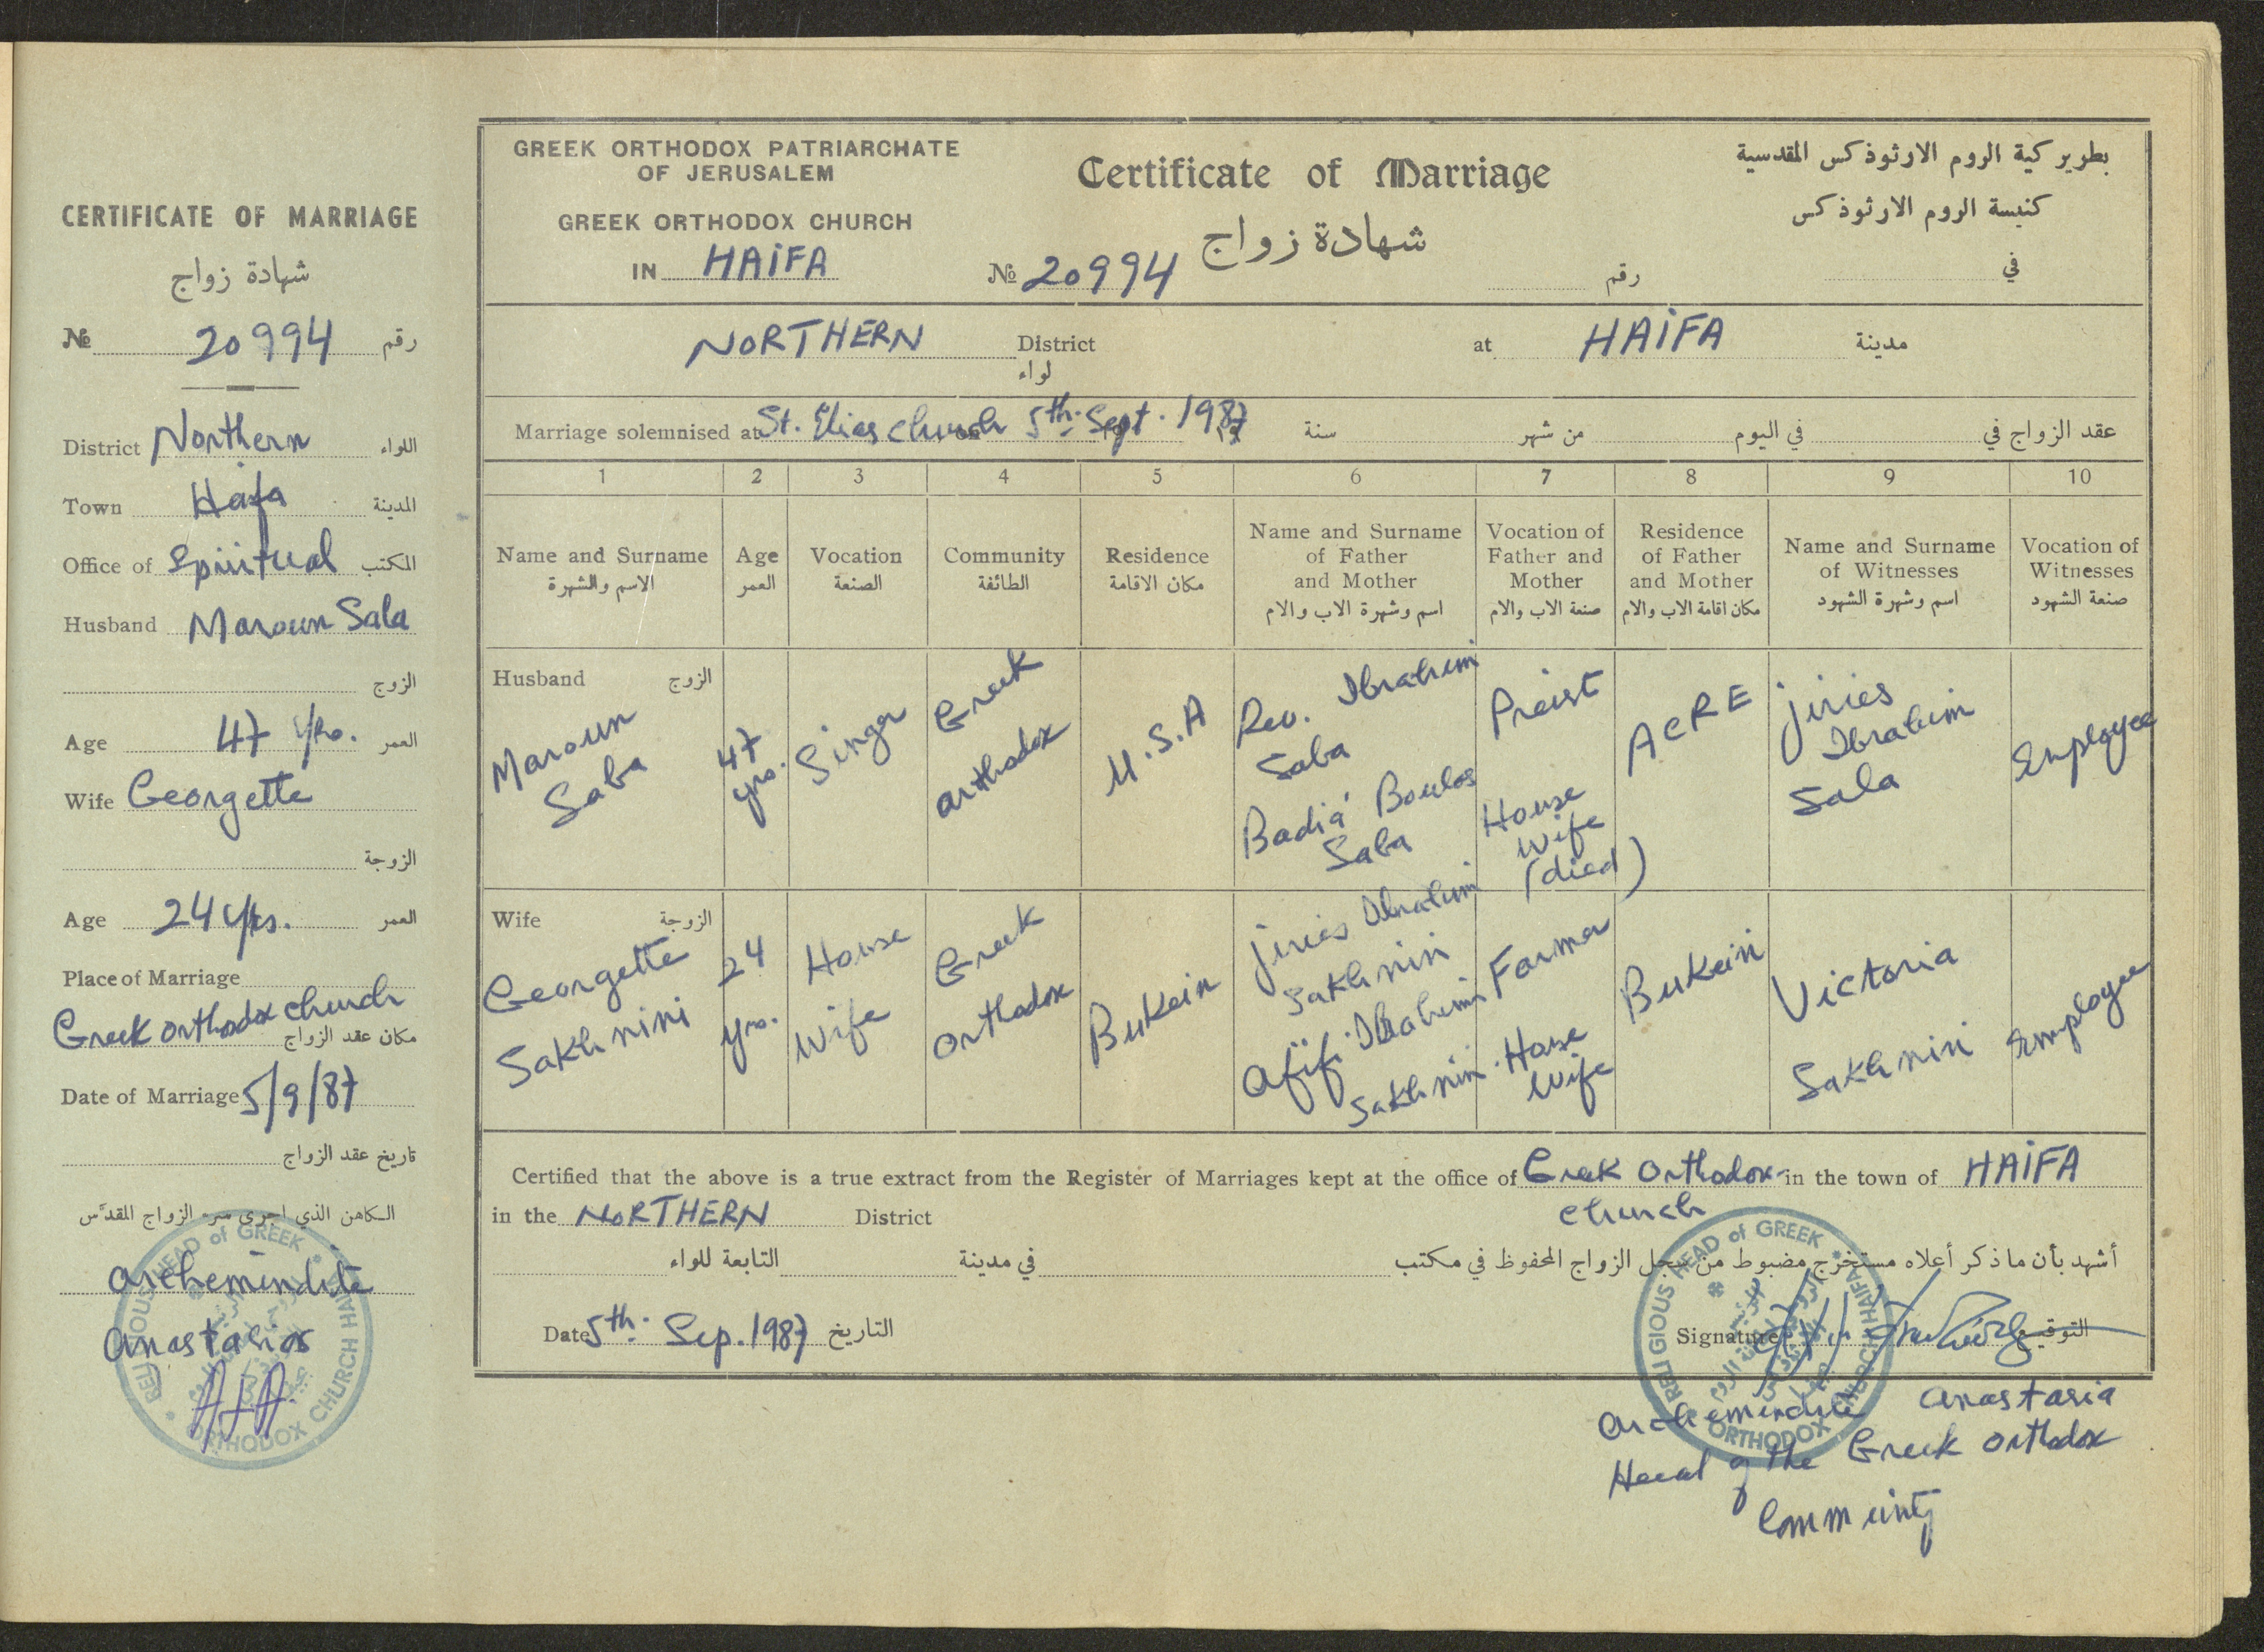 CERTIFICATE OF MARRIAGE
شهادة زواج
№ 20994 رقم
District Northern اللواء
Town Haifa المدينة
Office of Spiritual المكتب
Husband Maroun Saba
الزوج
Age 47 yrs. العمر
Wife Georgette
الزوجة
Age 24 yrs. العمر
Place of Marriage
Greek orthodox church
مكان عقد الزواج
Date of Marriage 5/9/87
تاريخ عقد الزواج
الكاهن الذي اجرى سر الزواج المقدّس
archemindite
anastasios
RELIGIOUS HEAD of GREEK ORTHODOX CHURCH HAIFA
GREEK ORTHODOX PATRIARCHATE
OF JERUSALEM
GREEK ORTHODOX CHURCH
IN HAIFA
Certificate of Marriage
شهادة زواج
№ 20994 رقم
بطريركية الروم الارثوذكس المقدسية
كنيسة الروم الارثوذكس
في
NORTHERN District
لواء
at HAIFA مدينة
Marriage solemnised at St. Elias church 5th. Sept. 1987 سنة من شهر في اليوم عقد الزواج في
1 2 3 4 5 6 7 8 9 10
Name and Surname
الاسم والشهرة
Age
العمر
Vocation
الصنعة
Community
الطائفة
Residence
مكان الاقامة
Name and Surname
of Father
and Mother
اسم وشهرة الاب والام
Vocation of
Father and
Mother
صنعة الاب والام
Residence
of Father
and Mother
مكان اقامة الاب والام
Name and Surname
of Witnesses
اسم وشهرة الشهود
Vocation of
Witnesses
صنعة الشهود
Husband الزوج
Maroun
Saba
47
yrs.
Singer
Greek
orthodox
U.S.A
Rev. Ibrahim
Saba
Badia' Boulos
Saba
Preist
House
Wife
(died)
ACRE
jiries
Ibrahim
Saba
Employee
Wife الزوجة
Georgette
Sakhnini
24
yrs.
House
Wife
Greek
orthodox
Bukein
jiries Ibrahim
Sakhnin
Afifi Ibrahim
Sakhnin
Farmer
House
Wife
Bukein
Victoria
Sakhnin
Employee
Certified that the above is a true extract from the Register of Marriages kept at the office of Greek Orthodox in the town of HAIFA
church
in the NORTHERN District
أشهد بأن ما ذكر أعلاه مستخرج مضبوط من سجل الزواج المحفوظ في مكتب في مدينة التابعة للواء
Date 5th. Sep. 1987 التاريخ
Signature التوقيع
RELIGIOUS HEAD of GREEK ORTHODOX CHURCH HAIFA
archemindite anastasia
Head of the Greek orthodox
Community